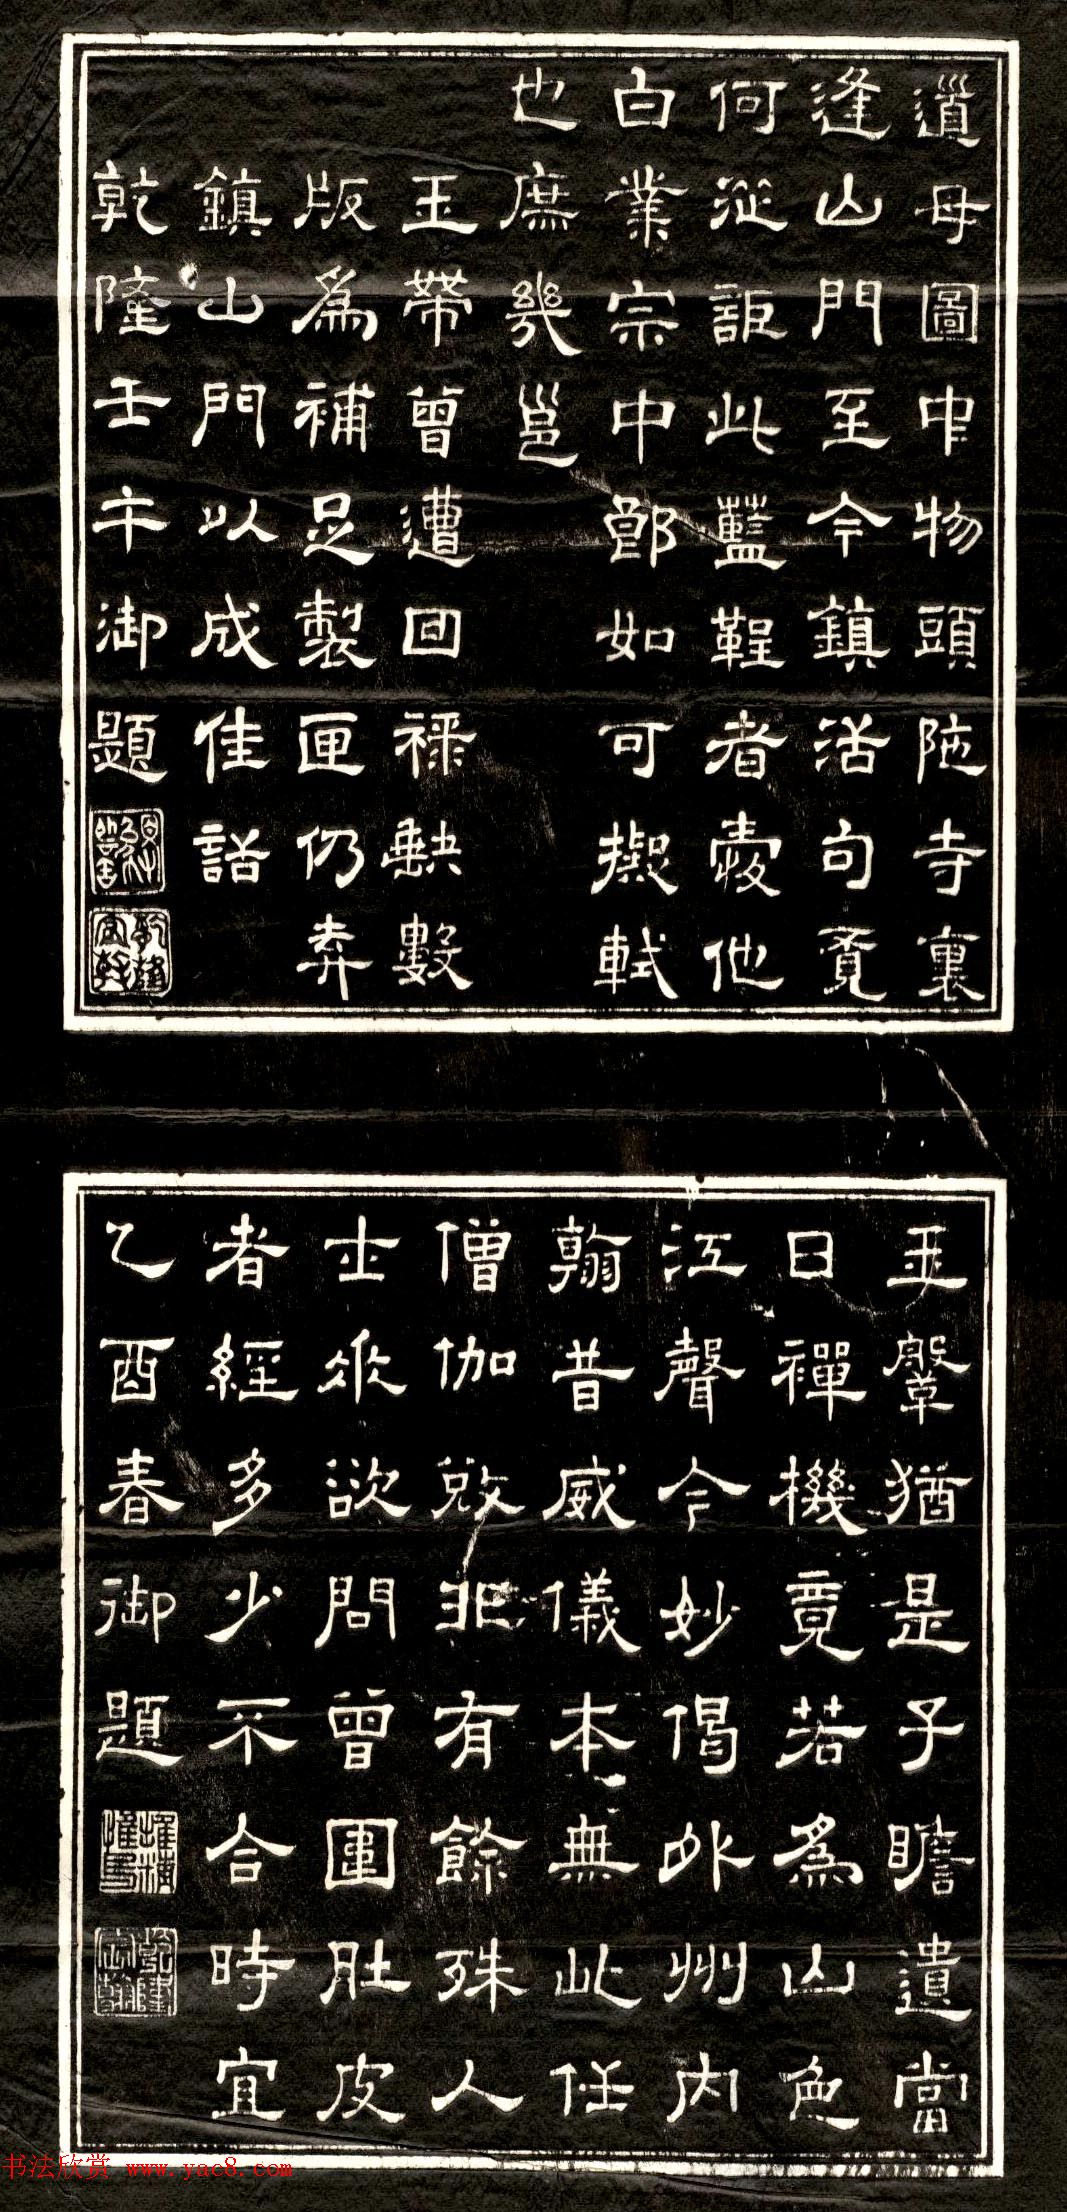 道母圖中物頭陀寺裏
逢山門至今鎮活句覓
何從詎此藍鞓者他
白業宗中郎如可擬軾
也庶幾邕
玉帶曾遭回祿缺數
版為補足製匣仍弆
鎮山門以成佳話
乾隆壬午御題
乾隆宸翰
玉鞶猶是子瞻遺當
日禪機竟若為山色
江聲今妙偈外州內
翰昔威儀本無此任
僧伽敚非有餘殊人
士欲問曾圍肚皮
者經多少不合時宜
乙酉春御題
乾隆宸翰
书法欣赏 www.yac8.com